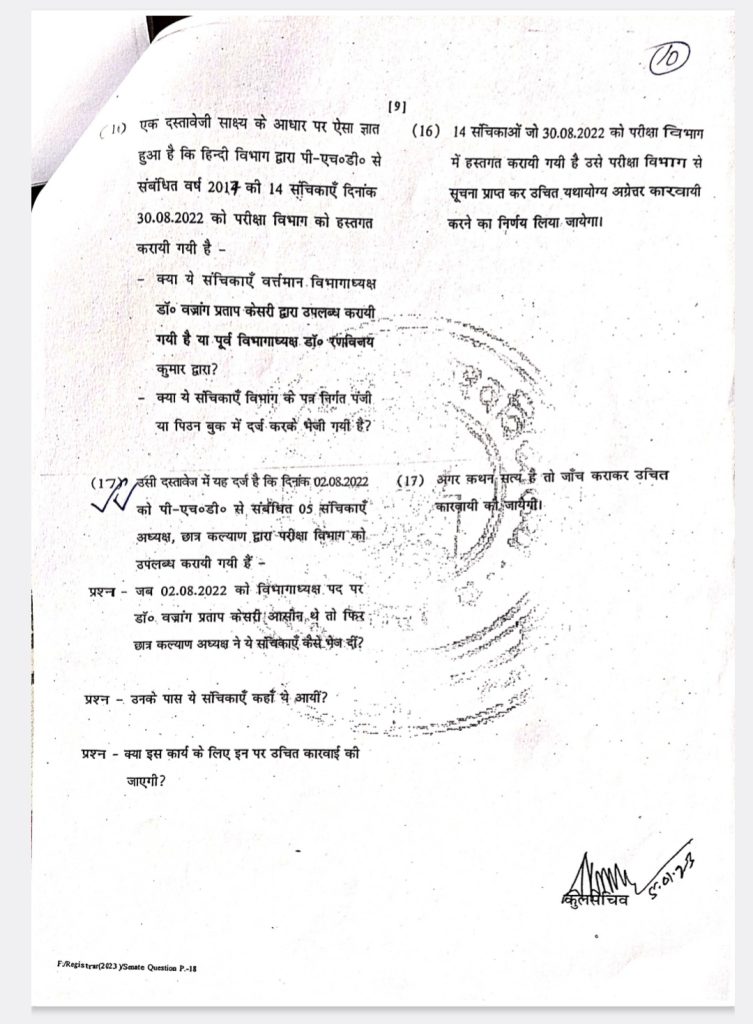 10
[9]
(16) एक दस्तावेजी साक्ष्य के आधार पर ऐसा ज्ञात
हुआ है कि हिन्दी विभाग द्वारा पी-एच०डी० से
संबंधित वर्ष 2017 की 14 संचिकाएँ दिनांक
30.08.2022 को परीक्षा विभाग को हस्तगत
करायी गयी है –
- क्या ये संचिकाएँ वर्त्तमान विभागाध्यक्ष
डॉ० वज्रांग प्रताप केसरी द्वारा उपलब्ध करायी
गयी है या पूर्व विभागाध्यक्ष डॉ० रणविजय
कुमार द्वारा?
- क्या ये संचिकाएँ विभाग के पत्र निर्गत पंजी
या पिउन बुक में दर्ज करके भेजी गयी है?
(16) 14 संचिकाओं जो 30.08.2022 को परीक्षा विभाग
में हस्तगत करायी गयी है उसे परीक्षा विभाग से
सूचना प्राप्त कर उचित यथायोग्य अग्रेत्तर कारवायी
करने का निर्णय लिया जायेगा।
(17) उसी दस्तावेज में यह दर्ज है कि दिनांक 02.08.2022
को पी-एच०डी० से संबंधित 05 संचिकाएँ
अध्यक्ष, छात्र कल्याण द्वारा परीक्षा विभाग को
उपलब्ध करायी गयी हैं –
(17) अगर कथन सत्य है तो जाँच कराकर उचित
कारवायी की जायेगी।
प्रश्न – जब 02.08.2022 को विभागाध्यक्ष पद पर
डॉ० वज्रांग प्रताप केसरी आसीन थे तो फिर
छात्र कल्याण अध्यक्ष ने ये संचिकाएँ कैसे भेज दीं?
प्रश्न – उनके पास ये संचिकाएँ कहाँ ये आयीं?
प्रश्न – क्या इस कार्य के लिए इन पर उचित कारवाई की
जाएगी?
5.01.23
कुलसचिव
F./Registrar(2023)/Senate Question P.-18